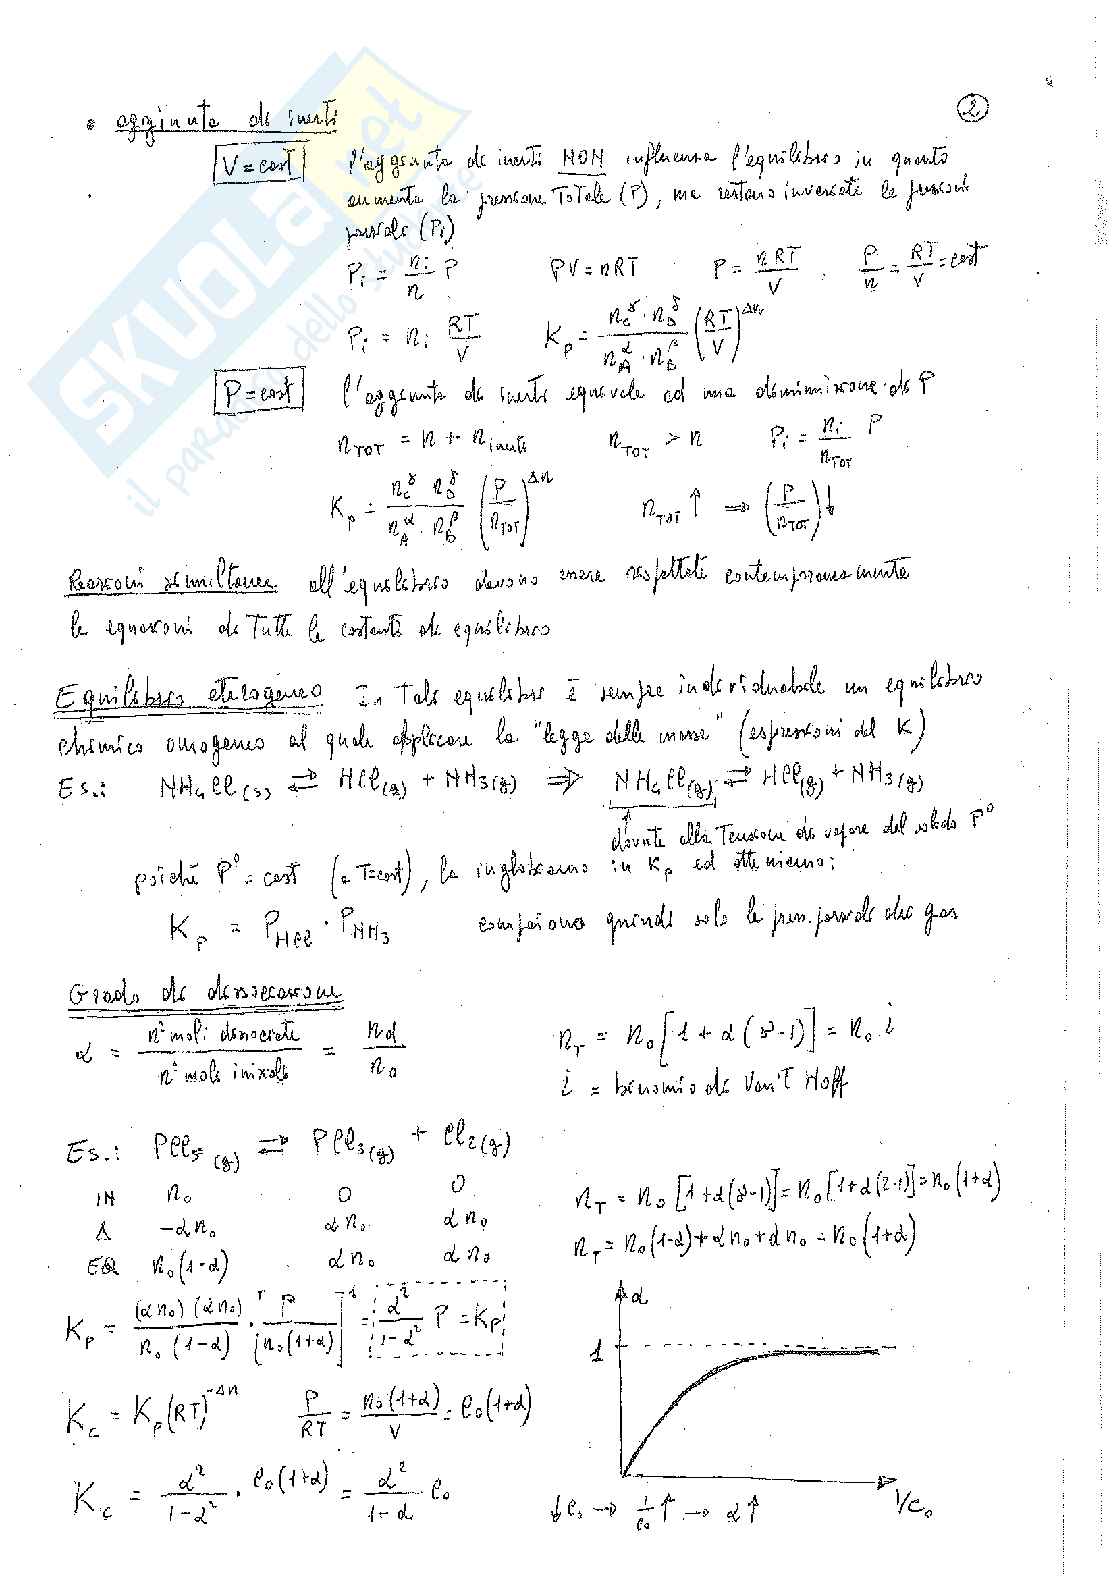 2
• aggiunta di inerti
V = cost l'aggiunta di inerti NON influenza l'equilibrio in quanto
aumenta la pressione Totale (P), ma restano invariate le pressioni
parziali (Pi)
Pi = ni/n P PV = nRT P = nRT/V P/n = RT/V = cost
Pi = ni RT/V Kp = nC^γ · nD^δ / nA^α · nB^β (RT/V)^Δn
P = cost l'aggiunta di inerti equivale ad una diminuzione di P
nTOT = n + n inerti nTOT > n Pi = ni/nTOT P
Kp = nC^γ nD^δ / nA^α · nB^β (P/nTOT)^Δn nTOT ↑ ⇒ (P/nTOT)↓
Reazioni simultanee all'equilibrio devono essere rispettate contemporaneamente
le equazioni di Tutte le costanti di equilibrio
Equilibrio eterogeneo In Tale equilibrio è sempre individuabile un equilibrio
chimico omogeneo al quale applicare la "legge delle masse" (espressioni del K)
Es.: NH4Cl(s) ⇄ HCl(g) + NH3(g) ⇒ NH4Cl(g) ⇄ HCl(g) + NH3(g)
dovuto alla Tensione di vapore del solido P°
poiché P° = cost (a T=cost), la inglobiamo in Kp ed otteniamo:
Kp = PHCl · PNH3 compaiono quindi solo le press. parziali dei gas
Grado di dissociazione
α = n° moli dissociate / n° moli iniziali = nd/n0 nT = n0[1 + α(ν-1)] = n0 i
i = binomio di Van'T Hoff
Es.: PCl5(g) ⇄ PCl3(g) + Cl2(g)
IN n0 0 0
Δ -αn0 αn0 αn0
EQ n0(1-α) αn0 αn0
nT = n0[1+α(ν-1)] = n0[1+α(2-1)] = n0(1+α)
nT = n0(1-α)+αn0+αn0 = n0(1+α)
Kp = (αn0)(αn0) / n0(1-α) · [P / n0(1+α)]^1 = α²/1-α² P = Kp
Kc = Kp(RT)^-Δn P/RT = n0(1+α)/V = C0(1+α)
Kc = α²/1-α² · C0(1+α) = α²/1-α C0
α
1
1/C0
↓C0 → 1/C0 ↑ → α↑
SKUOLA.net
il paradiso dello studente